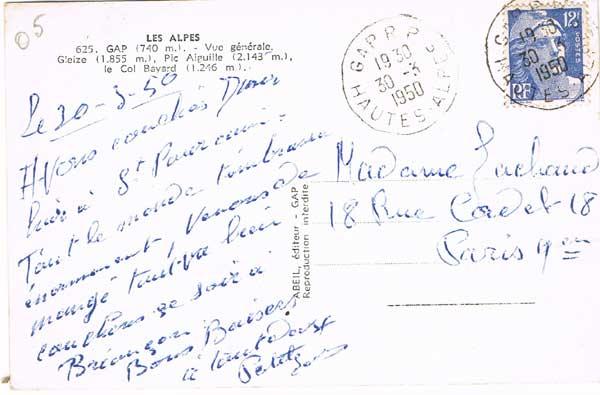 05
LES ALPES
625. GAP (740 m.). - Vue générale.
Gleize (1.855 m.), Pic Aiguille (2.143 m.),
le Col Bayard (1.246 m.).
GAP R.P.
19 30
30 - 3
1950
HAUTES-ALPES
12F
POSTES
RF
GAP R.P.
19 30
30 - 3
1950
HAUTES-ALPES
Le 30-3-50
Avons couchés
hier à St Pourcain.
Tout le monde
énormement, Venons de
mangé tout va bien
couchons ce soir à
Briançon
Bons Baisers
à tout
ABEIL, éditeur - GAP
Reproduction interdite
Madame Lachaud
18 Rue Cadet 18
Paris 9em